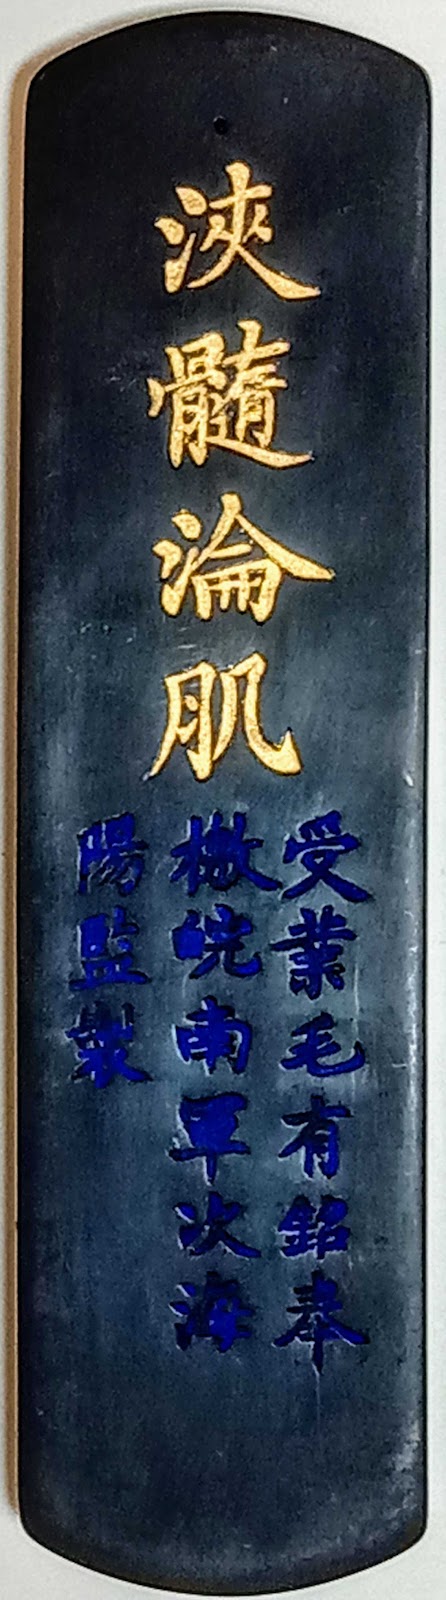 浹髓淪肌
受業毛有銘奉
檄皖南軍次海
陽監製